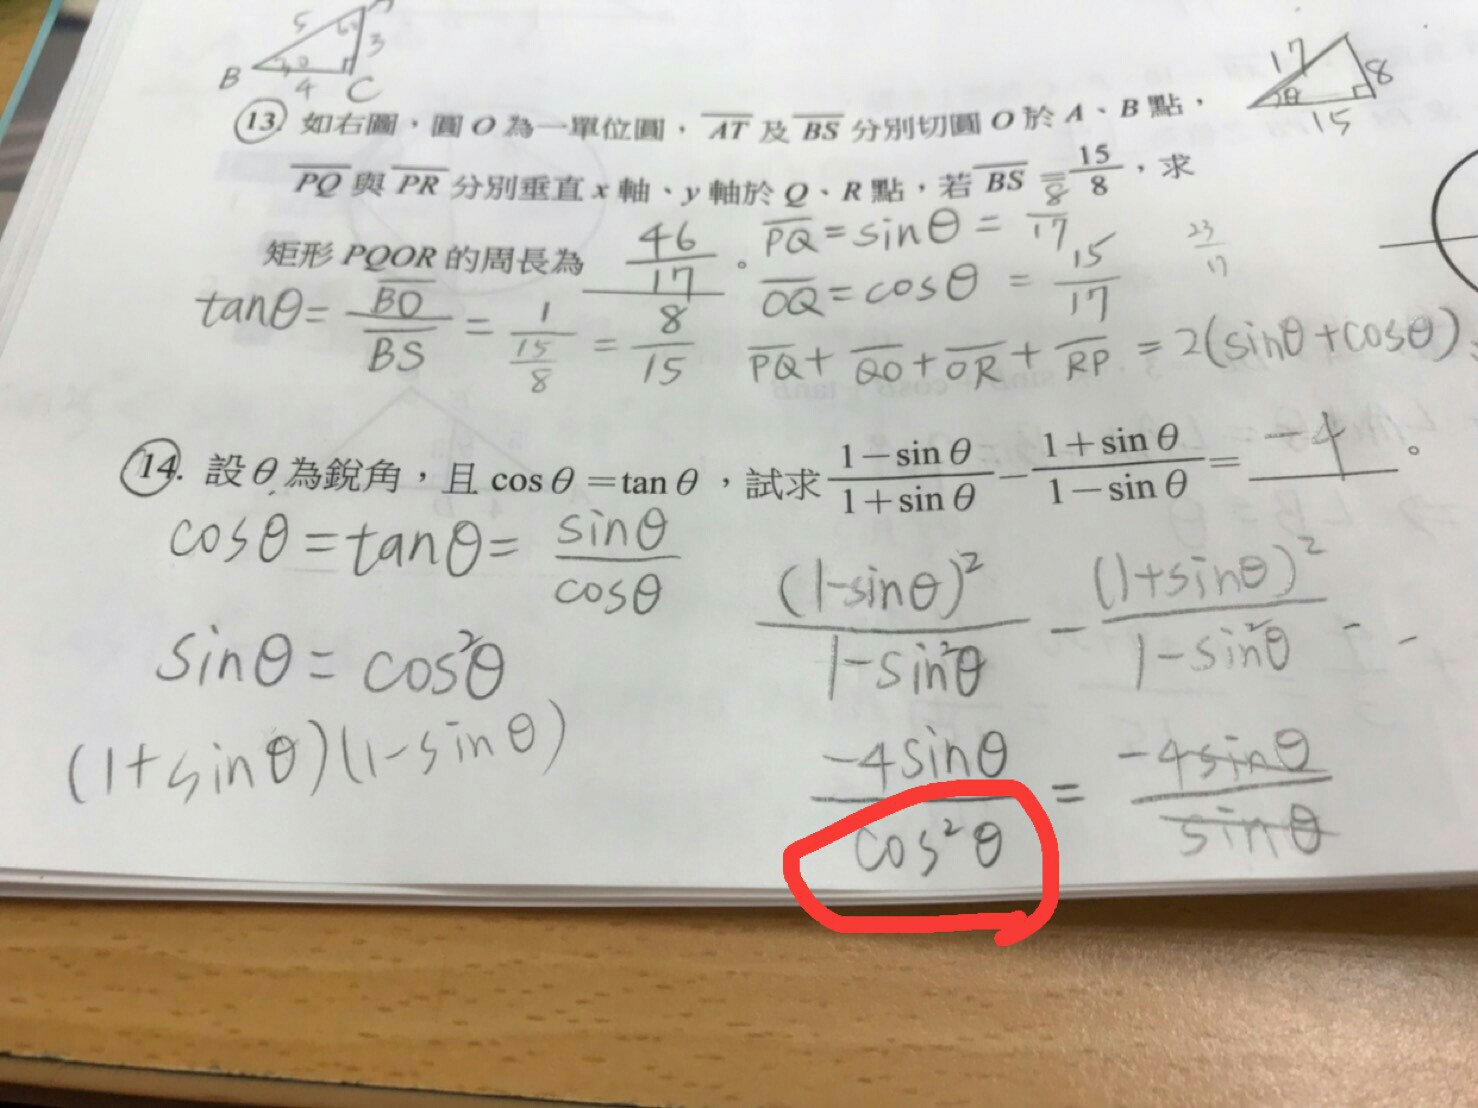 5 3
B 4 C
17 8
θ 15
13. 如右圖，圓 O 為一單位圓，AT 及 BS 分別切圓 O 於 A、B 點，
PQ 與 PR 分別垂直 x 軸、y 軸於 Q、R 點，若 BS = 15/8，求
矩形 PQOR 的周長為 46/17 。
PQ = sinθ = 8/17
OQ = cosθ = 15/17
23/17
tanθ = BO/BS = 1/(15/8) = 8/15
PQ + QO + OR + RP = 2(sinθ + cosθ)
14. 設 θ 為銳角，且 cos θ = tan θ，試求 (1 − sin θ)/(1 + sin θ) − (1 + sin θ)/(1 − sin θ) = -4 。
cosθ = tanθ = sinθ/cosθ
sinθ = cos²θ
(1+sinθ)(1-sinθ)
(1-sinθ)²/(1-sin²θ) - (1+sinθ)²/(1-sin²θ)
-4sinθ/cos²θ = -4sinθ/sinθ